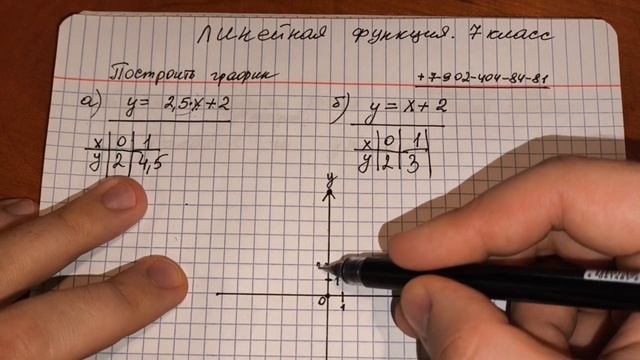 Линейная функция. 7 класс
Построить график
+7-902-404-84-81
а) y = 2,5·x+2
б) y = x+2
x 0 1
y 2 4,5
x 0 1
y 2 3
y
2
1
0 1